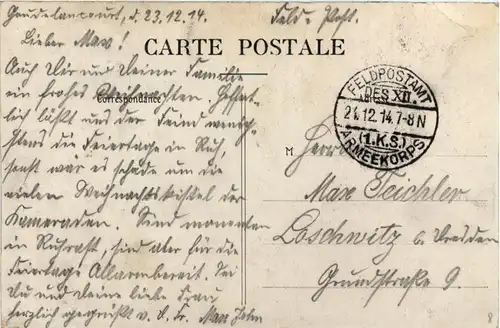 Goudelancourt, d. 23.12.14.
Feld-Post.
Lieber Max!
CARTE POSTALE
Auch Dir und Deiner Familie
ein frohes Weihnachten. Hoffent-
Correspondance
lich läßt uns der Feind wenig-
stens die Feiertage in Ruh,
sonst wär es schade um die
vielen Weihnachtskistel der
Kameraden. Sind momentan
in Ruhrast, sind aber für die
Feiertage Allarmbereit. Sei
Du und Deine liebe Frau
herzlich gegrüßt v. d. Fr. Max
FELDPOSTAMT
DES XII.
24.12.14.7-8N
(1.K.S.)
ARMEEKORPS
M
Herrn
Max Teichler
Loschwitz b. Dresden
Grundstraße 9.